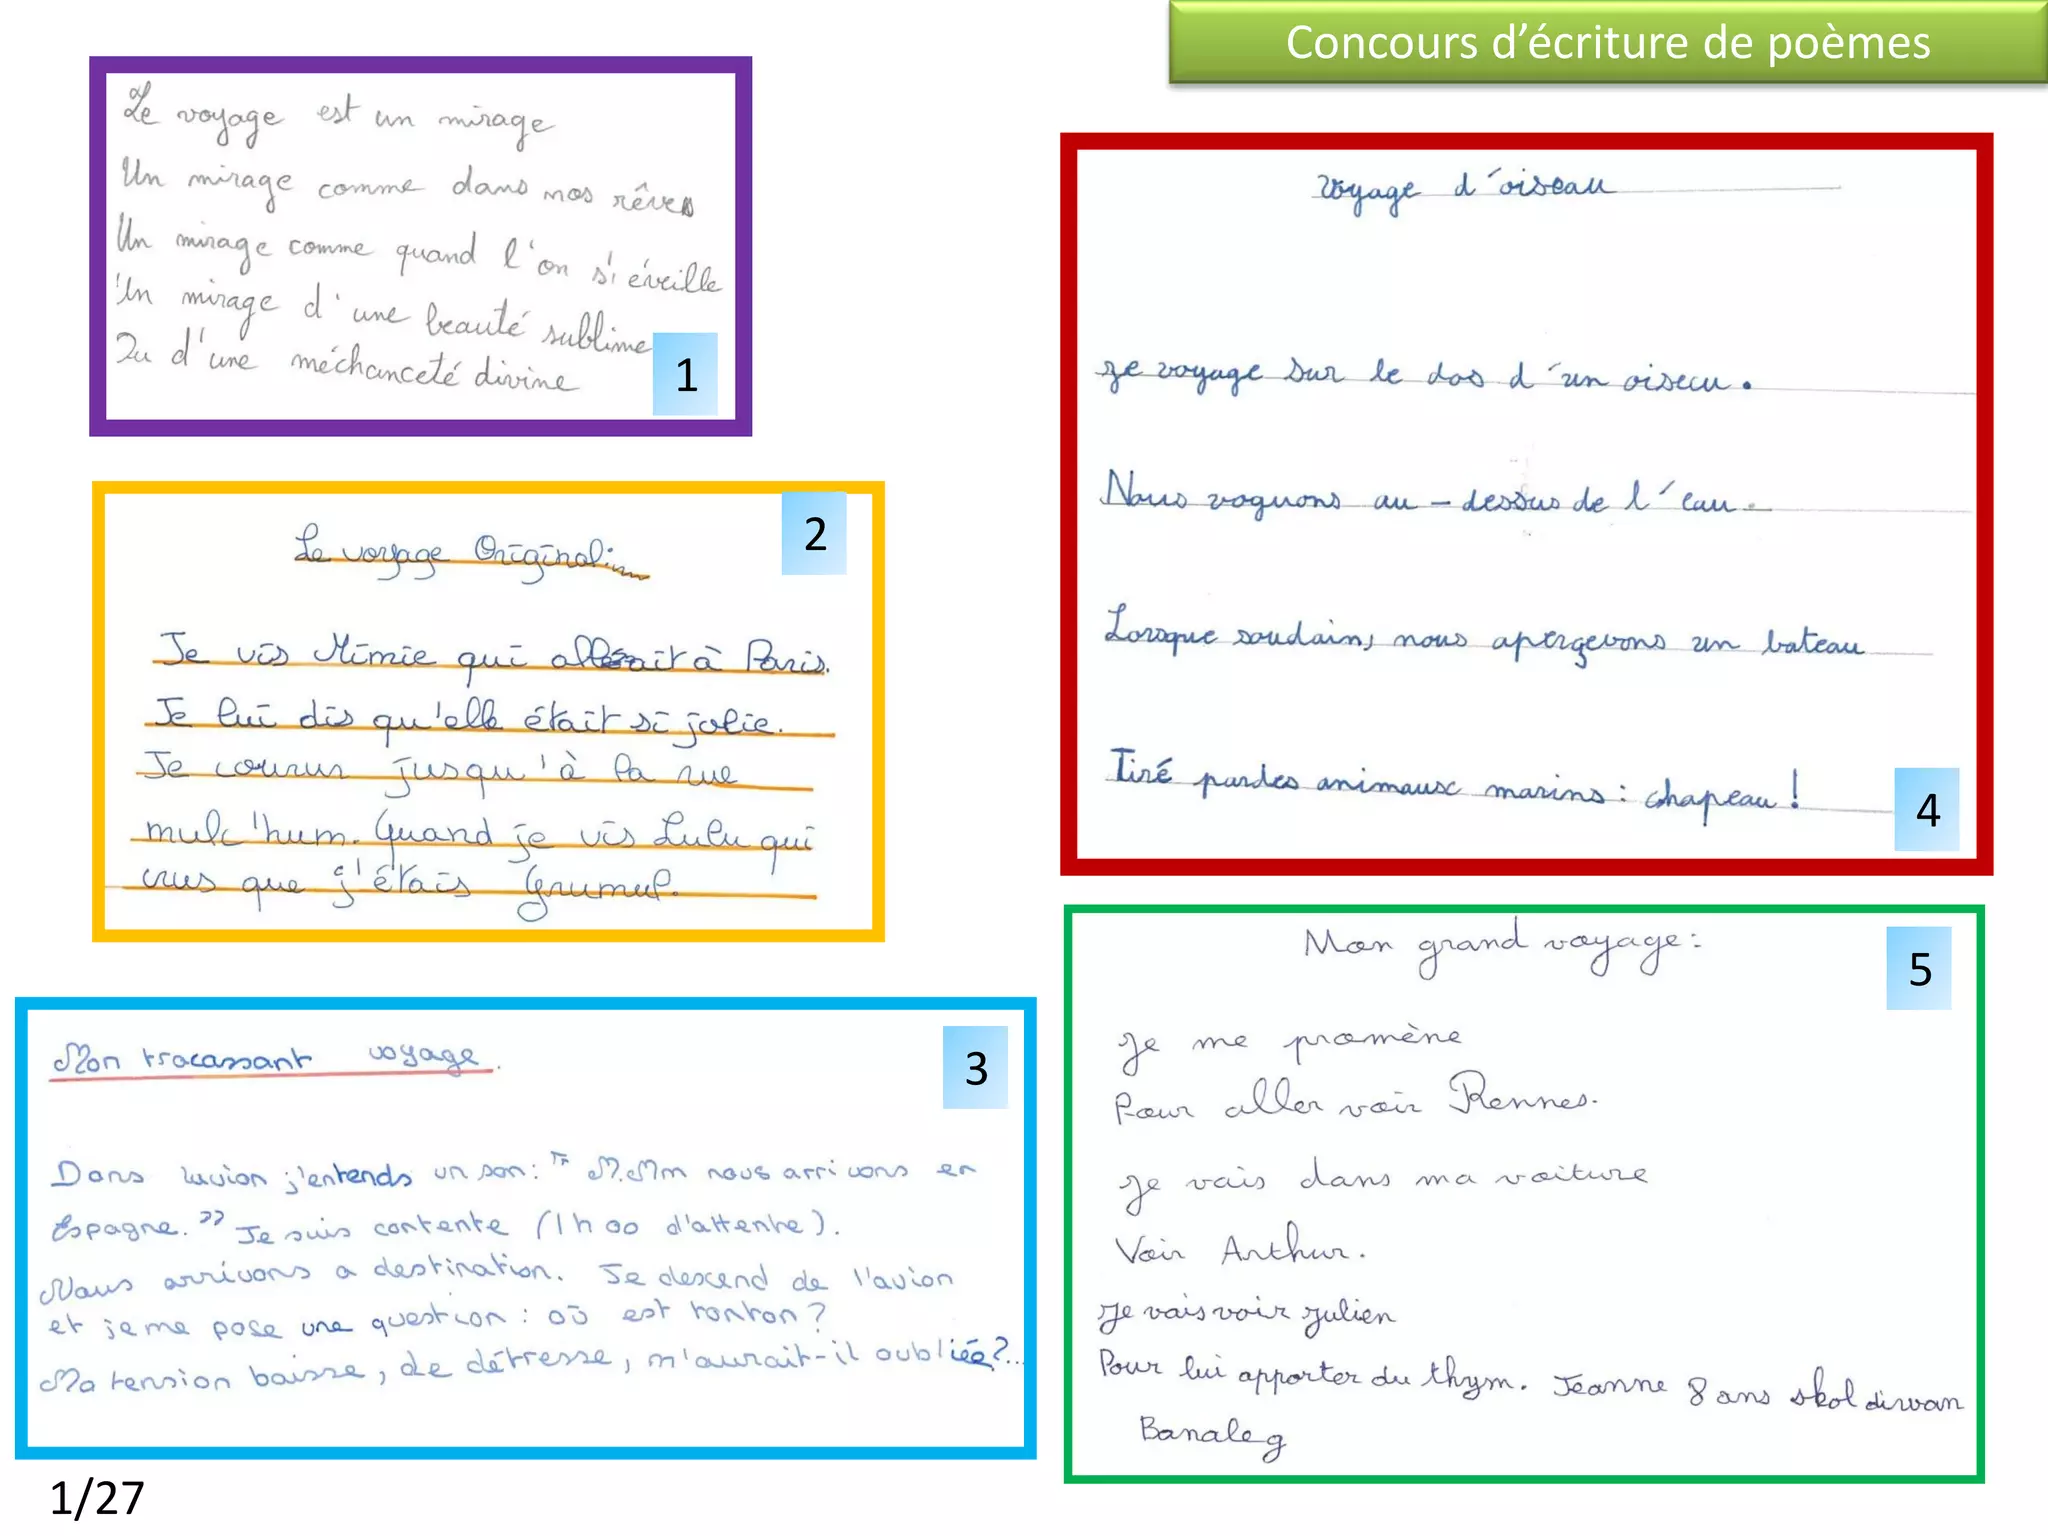 Concours d’écriture de poèmes
Le voyage est un mirage
Un mirage comme dans nos rêves
Un mirage comme quand l'on s'éveille
Un mirage d'une beauté sublime
Ou d'une méchanceté divine
1
2
Le voyage Original:
Je vis Mimie qui allait à Paris.
Je lui dis qu'elle était si jolie.
Je courur jusqu'à la rue
mulc'hum. Quand je vis Lulu qui
crus que j'étais Grumul.
3
Mon tracassant voyage.
Dans lavion j'entends un son: " M.Mm nous arrivons en
Espagne." Je suis contente (1h00 d'attente).
Nous arrivons a destination. Je descend de l'avion
et je me pose une question : où est tonton ?
Ma tension baisse, de détresse, m'aurait-il oubliée?...
voyage d'oiseau
Je voyage sur le dos d'un oiseau.
Nous voguons au-dessus de l'eau.
Lorsque soudain, nous apergevons un bateau
Tiré par des animaux marins : chapeau !
4
5
Mon grand voyage:
Je me promène
Pour aller voir Rennes.
Je vais dans ma voiture
Voir Arthur.
Je vais voir Julien
Pour lui apporter du thym. Jeanne 8 ans skol diwan
Banaleg
1/27